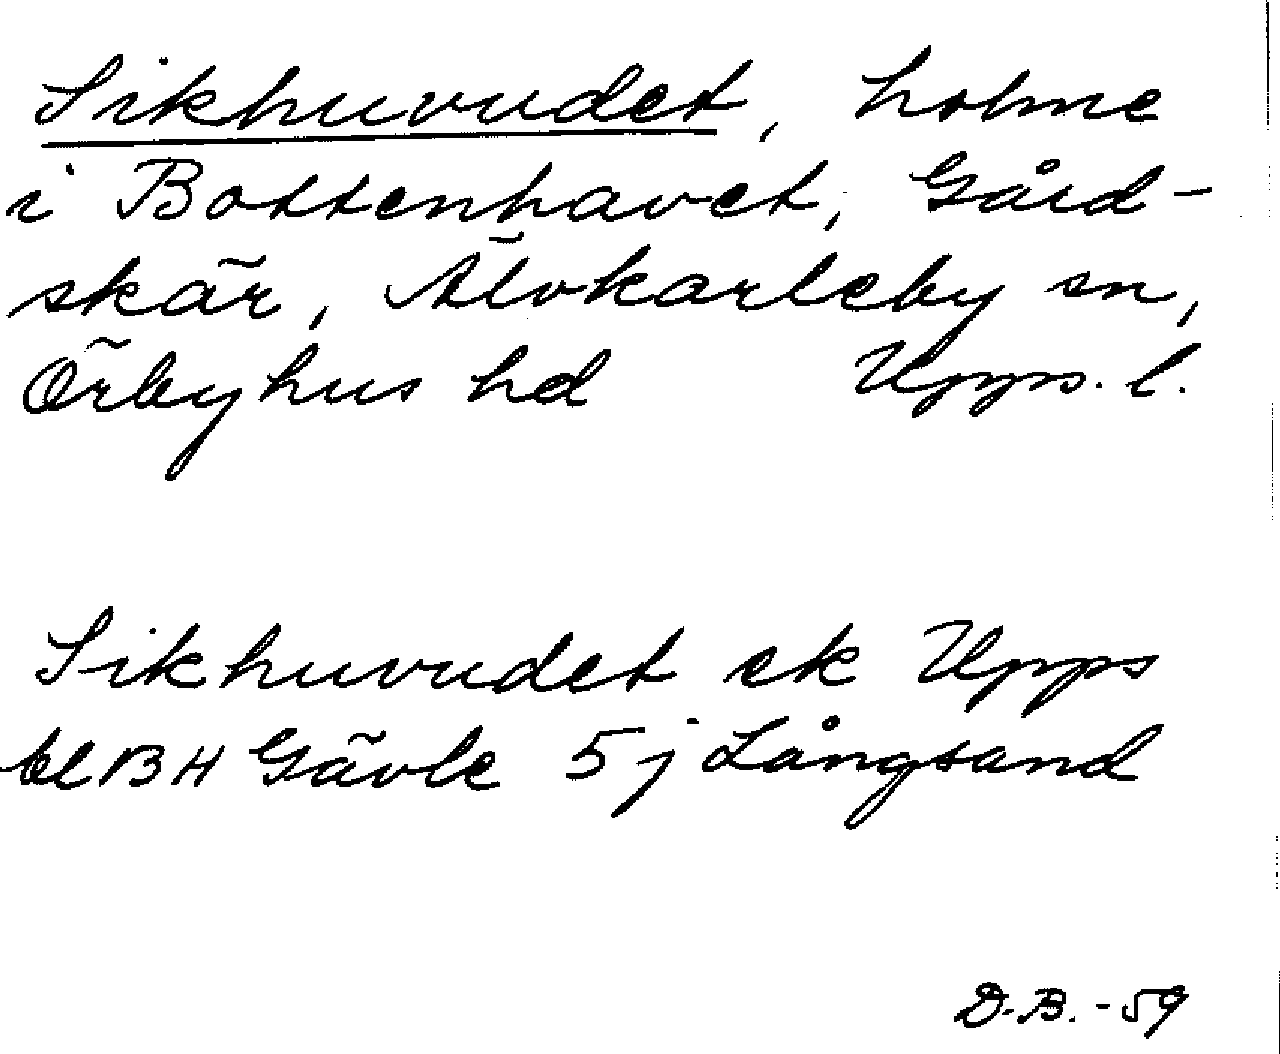 Sikhuvudet, holme
i Bottenhavet, Gård-
skär, Älvkarleby sn,
Örbyhus hd Upps. l.
Sikhuvudet ek Upps
bl BH Gävle 5 j Långsand
D.B. -59